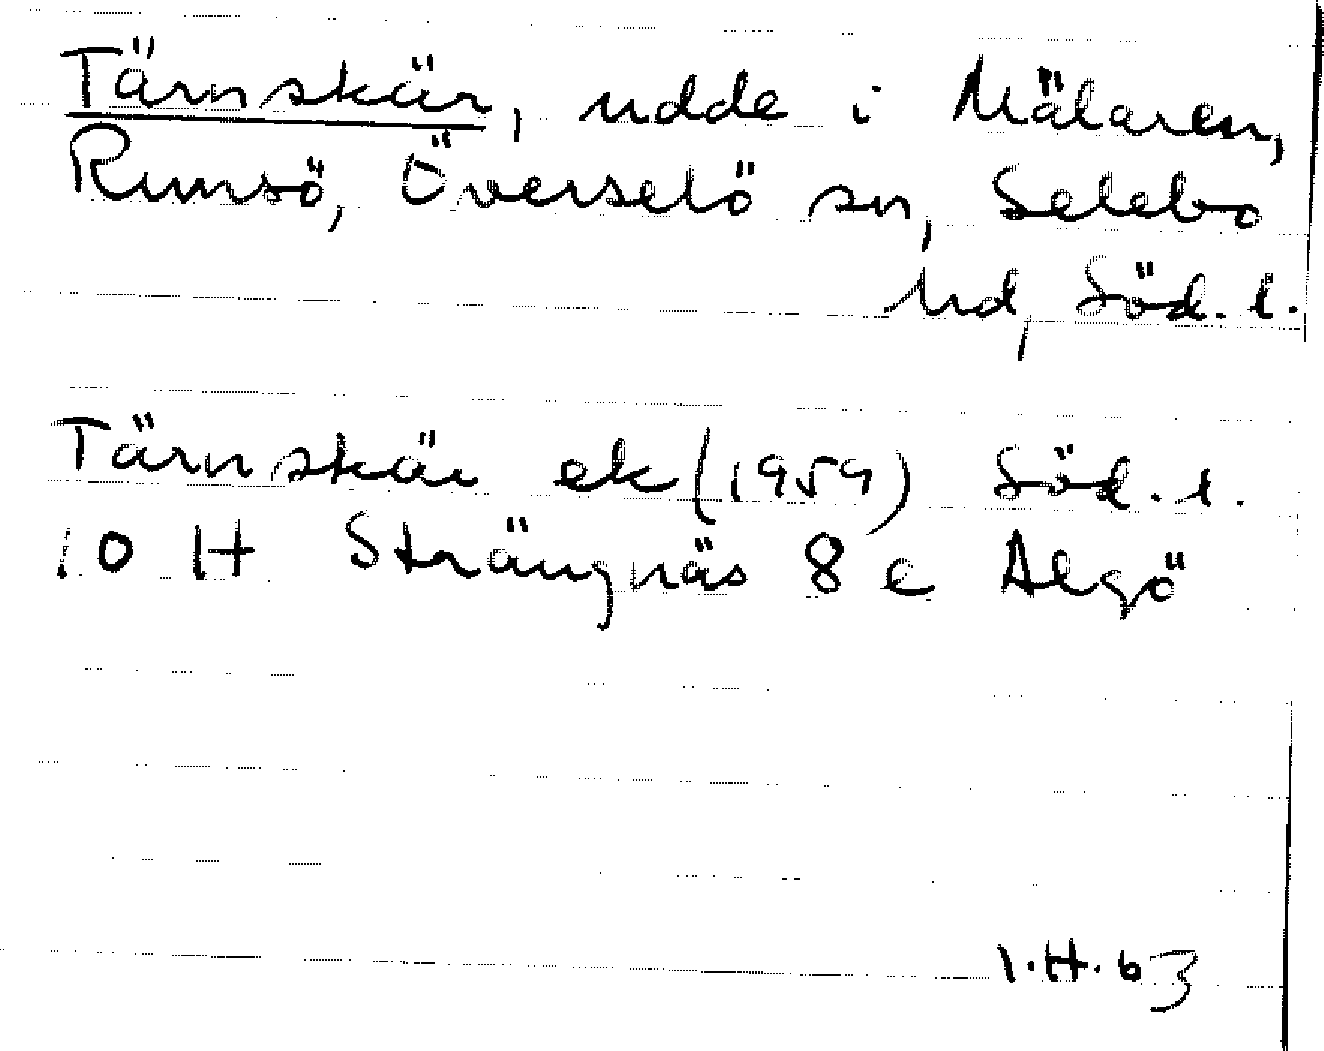 Tärnskär, udde i Mälaren,
Runsö, Överselö sn, Selebo
hd, Söd. l.
Tärnskär ek (1959) Söd. l.
10 H Strängnäs 8 e Algö
I.H. 63